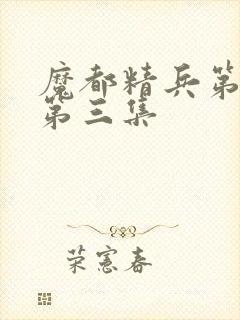 魔都精兵第
第三集
荣宪春